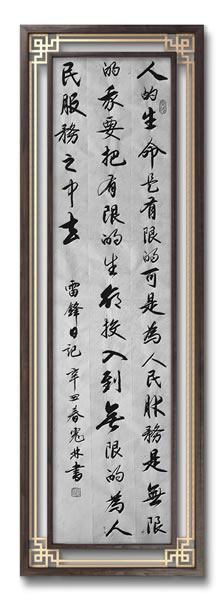 人的生命是有限的可是为人民服務是無限
的我要把有限的生命投入到無限的为人
民服務之中去
雷鋒日记辛丑春宪林書